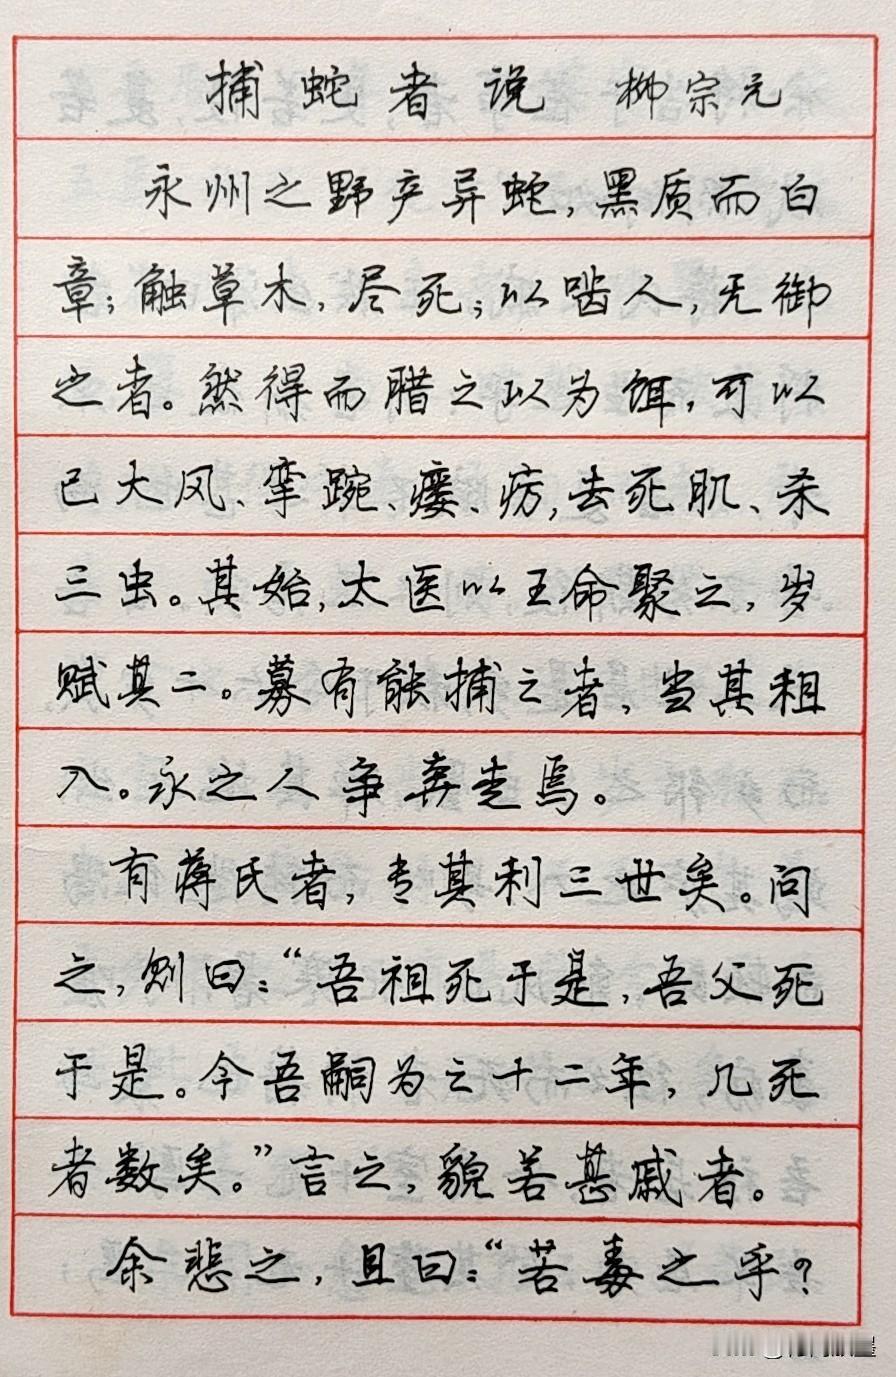 捕蛇者说 柳宗元
永州之野产异蛇，黑质而白
章；触草木，尽死；以啮人，无御
之者。然得而腊之以为饵，可以
已大风、挛踠、瘘、疠，去死肌、杀
三虫。其始，太医以王命聚之，岁
赋其二。募有能捕之者，当其租
入。永之人争奔走焉。
有蒋氏者，专其利三世矣。问
之，则曰：“吾祖死于是，吾父死
于是。今吾嗣为之十二年，几死
者数矣。”言之，貌若甚戚者。
余悲之，且曰：“若毒之乎？